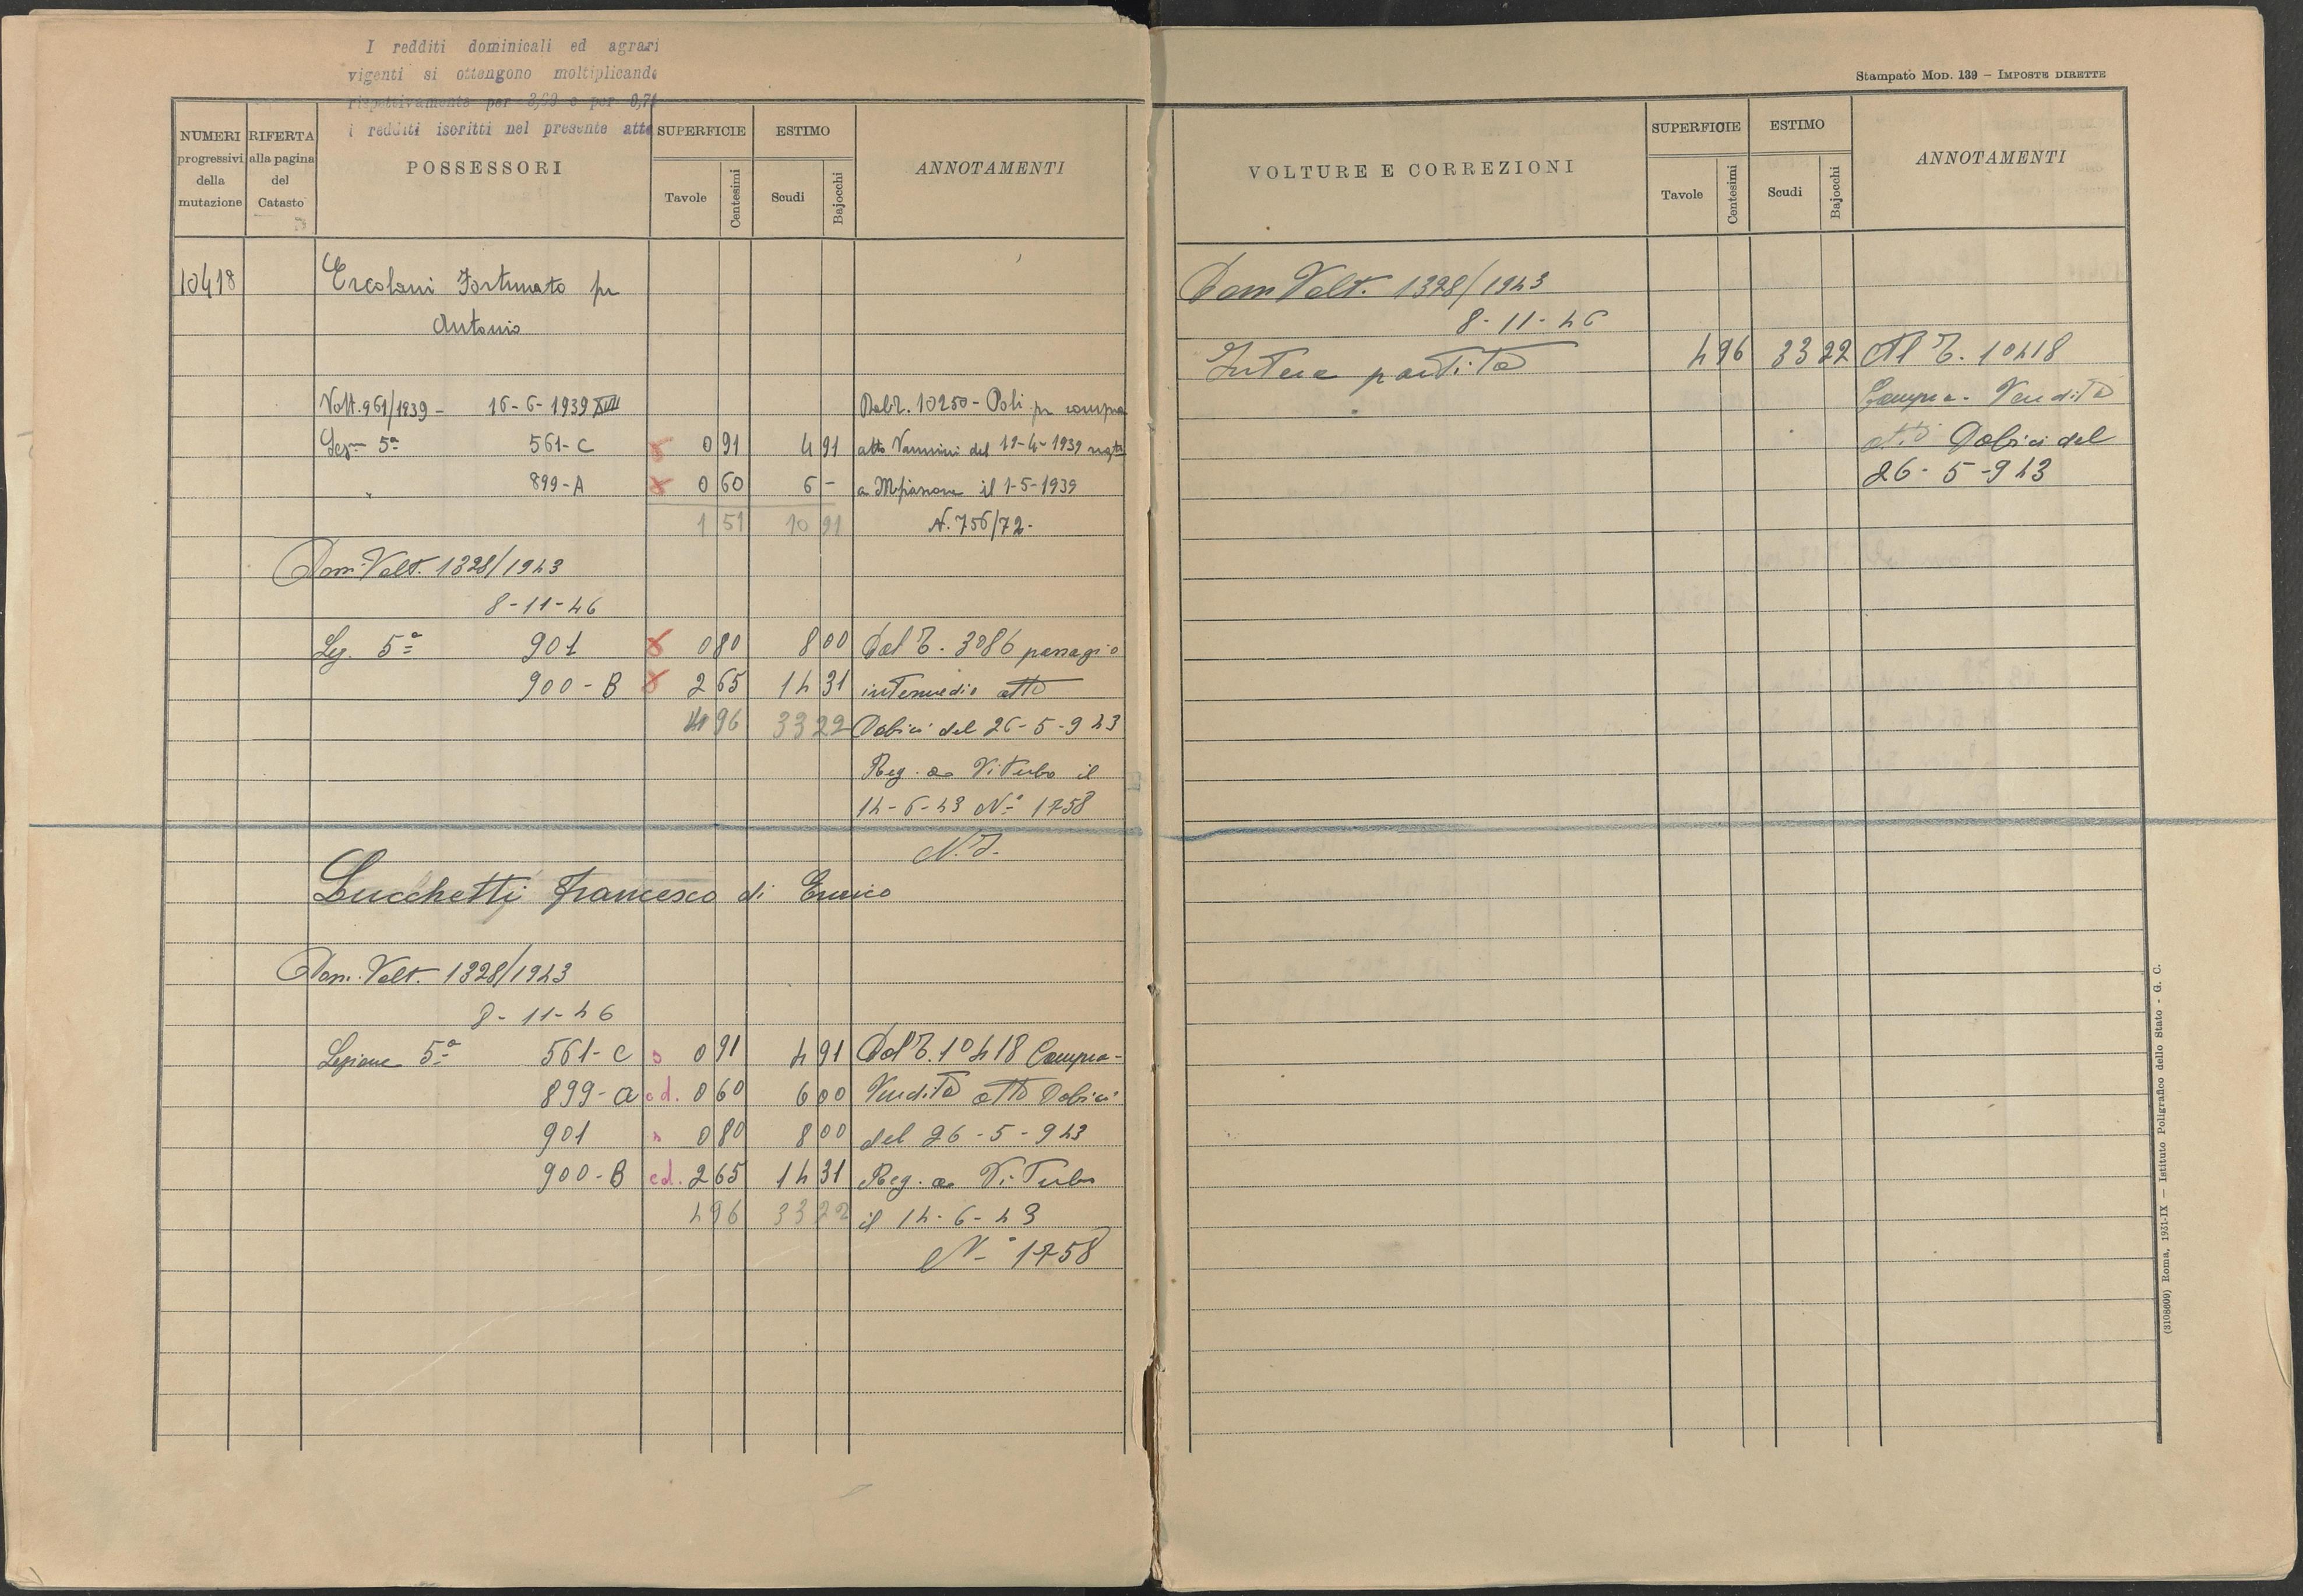 I redditi dominicali ed agrari
vigenti si ottengono moltiplicando
rispettivamente per 3,60 e per 0,74
i redditi iscritti nel presente atto
NUMERI progressivi della mutazione
RIFERTA alla pagina del Catasto
POSSESSORI
SUPERFICIE
Tavole Centesimi
ESTIMO
Scudi Bajocchi
ANNOTAMENTI
10418 Ercolani Fortunato fu
Antonio
Volt. 961/1939 - 16-6-1939 XVII Dal T. 10250 - Poli per compra
Sezne 5a 561-C 0 91 4 91 atto Vannini del 12-4-1939 regto
" 899-A 0 60 6 - a Mfiascone il 1-5-1939
1 51 10 91 N. 756/72.
Dom. Volt. 1328/1943
8-11-46
Sez. 5a 901 0 80 8 00 Dal T. 3086 passagio
900-B 2 65 14 31 intermedio atto
4 96 33 22 Dobici del 26-5-943
Reg. a Viterbo il
14-6-43 N° 1758
N.T.
Lucchetti Francesco di Enrico
Dom. Volt. 1328/1943
8-11-46
Sezione 5a 561-C s 0 91 4 91 Dal T. 10418 Compra-
899-a cd. 0 60 6 00 Vendita atto Dobici
901 s 0 80 8 00 del 26-5-943
900-B cd. 2 65 14 31 Reg. a Viterbo
4 96 33 22 il 14-6-43
N° 1758
Stampato MOD. 139 - IMPOSTE DIRETTE
VOLTURE E CORREZIONI
SUPERFICIE
Tavole Centesimi
ESTIMO
Scudi Bajocchi
ANNOTAMENTI
Dom Volt. 1328/1943
8-11-46
Intera partita 4 96 33 22 Al T. 10418
Compra-Vendita
atto Dobici del
26-5-943
(3108609) Roma, 1931-IX — Istituto Poligrafico dello Stato - G. C.